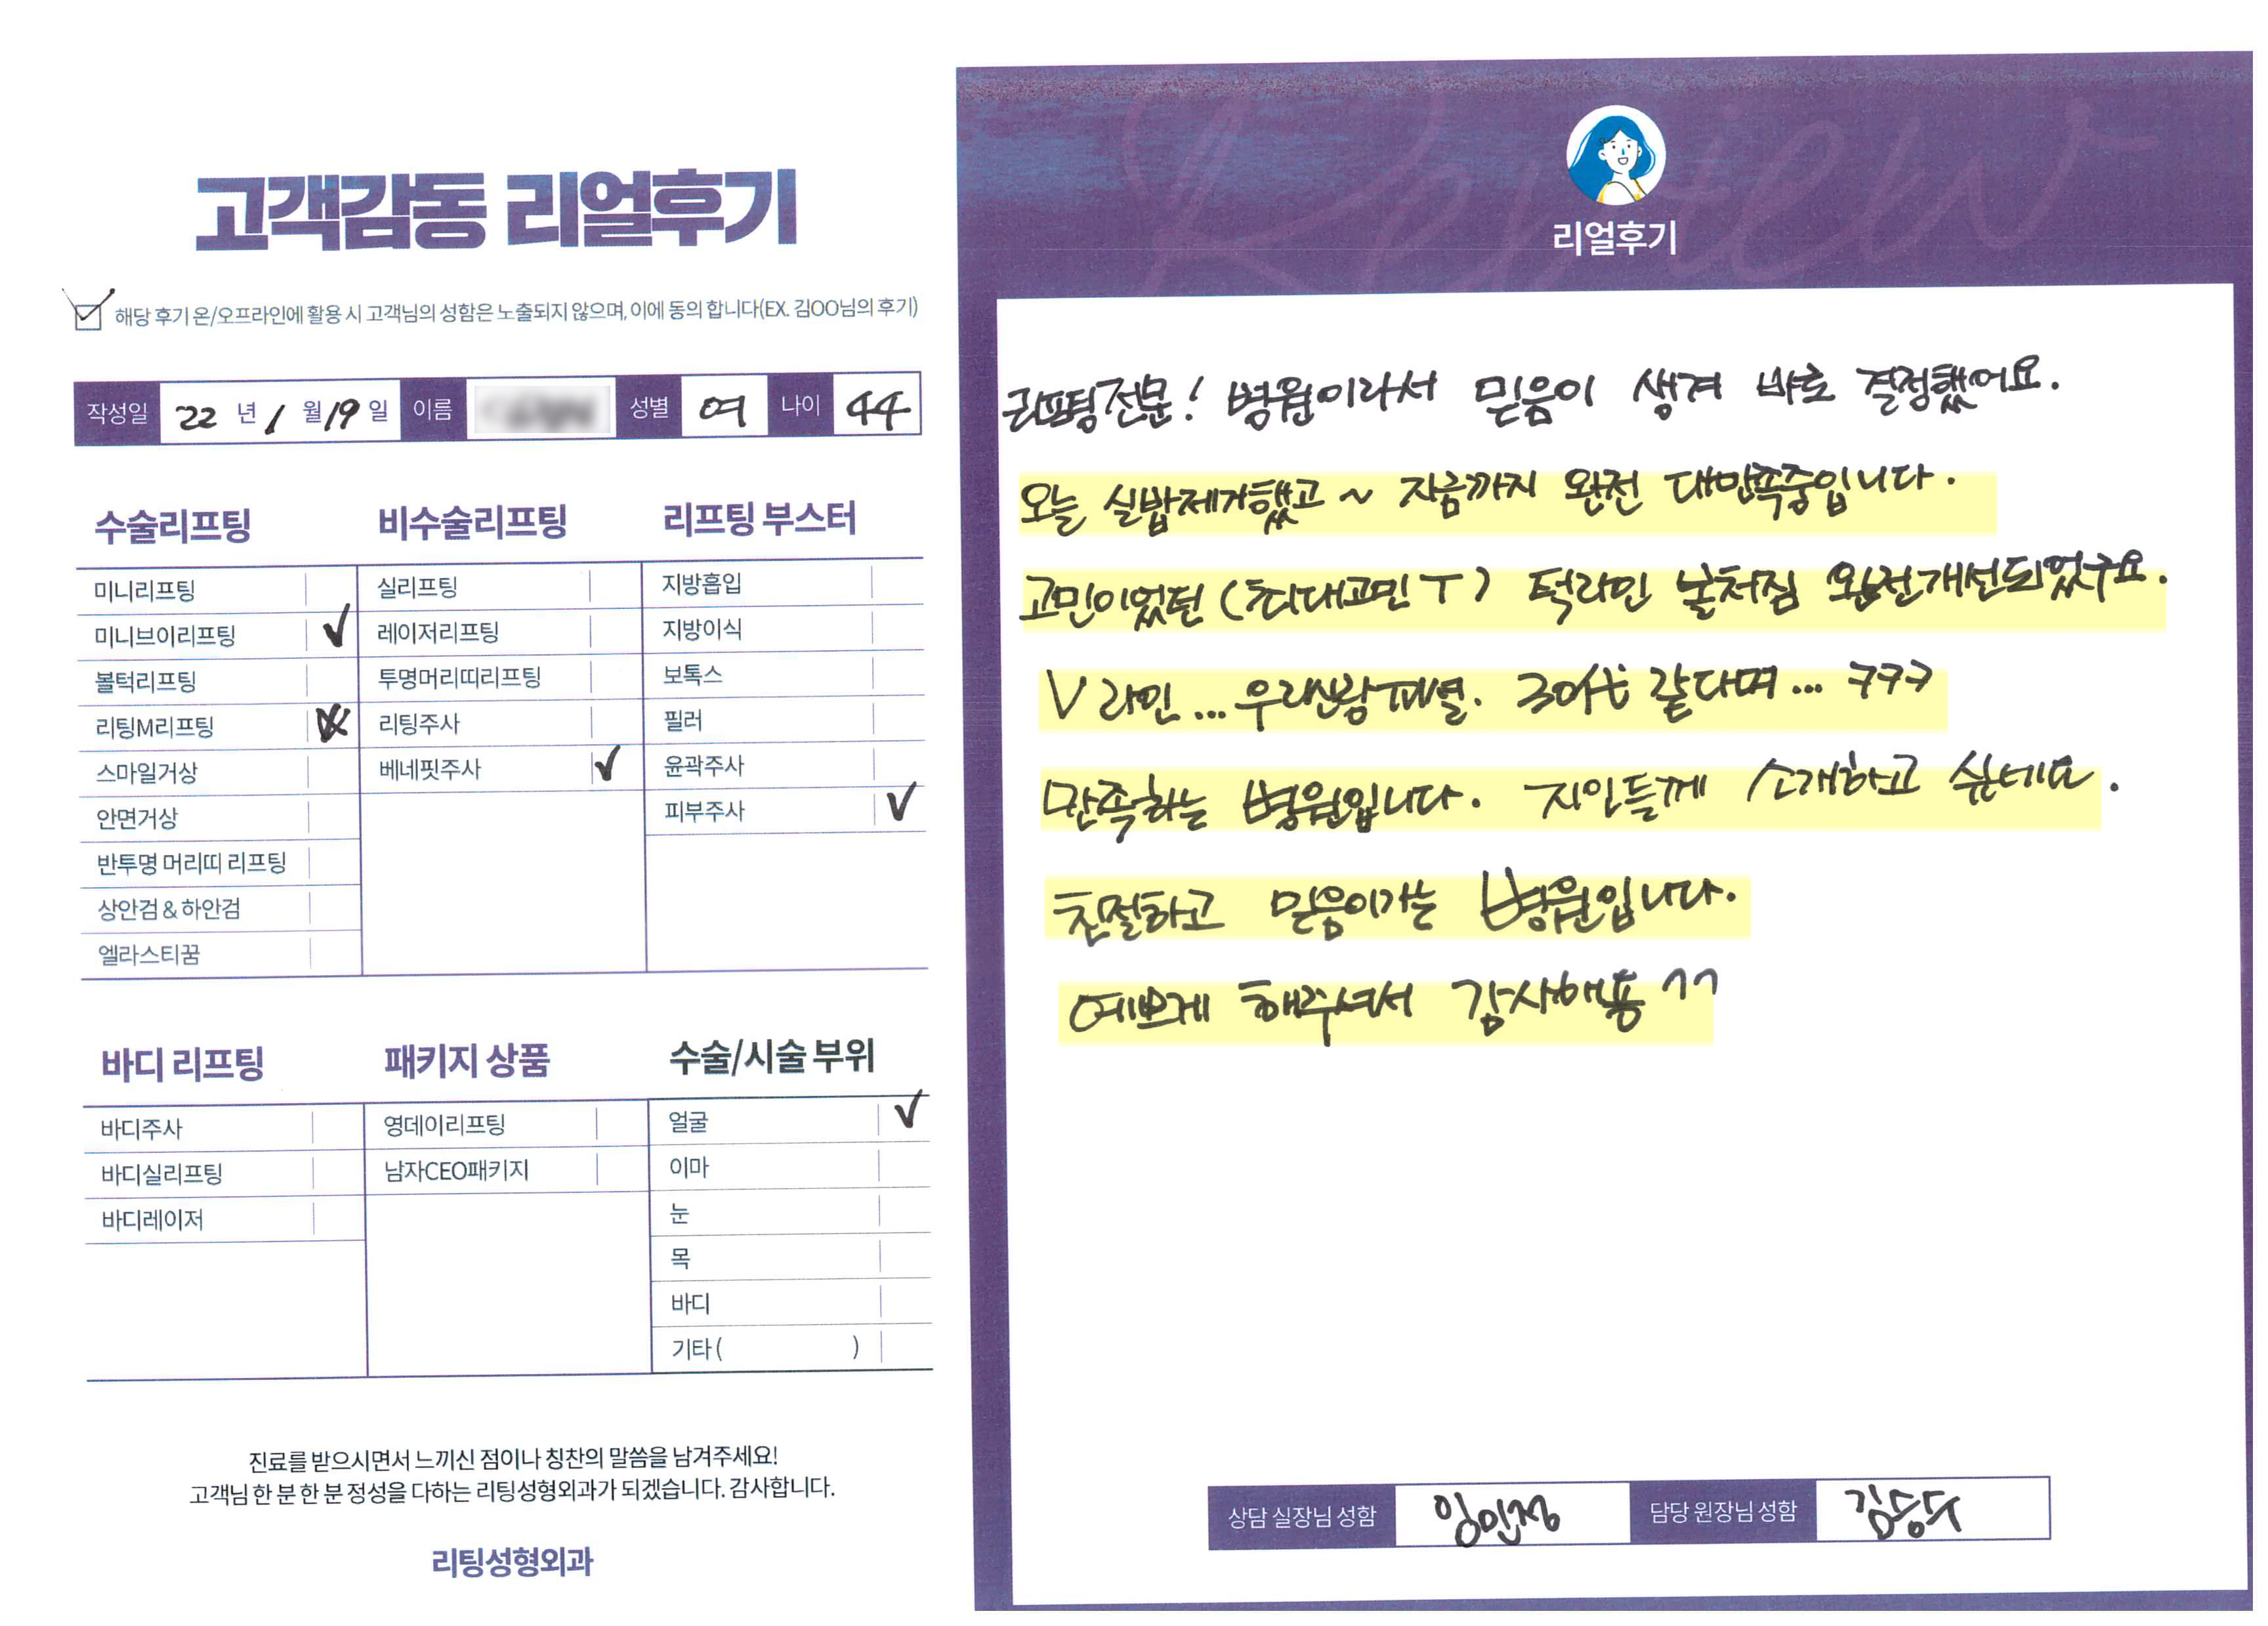 고객감동 리얼후기
해당 후기 온/오프라인에 활용 시 고객님의 성함은 노출되지 않으며, 이에 동의 합니다(EX. 김OO님의 후기)
작성일 '22 년 1 월 19 일 이름 성별 여 나이 44
수술리프팅
미니리프팅
미니브이리프팅
볼턱리프팅
리팅M리프팅
스마일거상
안면거상
반투명 머리띠 리프팅
상안검 & 하안검
엘라스티꿈
비수술리프팅
실리프팅
레이저리프팅
투명머리띠리프팅
리팅주사
베네핏주사
리프팅 부스터
지방흡입
지방이식
보톡스
필러
윤곽주사
피부주사
바디 리프팅
바디주사
바디실리프팅
바디레이저
패키지 상품
영데이리프팅
남자CEO패키지
수술/시술 부위
얼굴
이마
눈
목
바디
기타 ( )
진료를 받으시면서 느끼신 점이나 칭찬의 말씀을 남겨주세요!
고객님 한 분 한 분 정성을 다하는 리팅성형외과가 되겠습니다. 감사합니다.
리팅성형외과
Review
리얼후기
리프팅전문! 병원이라서 믿음이 생겨 바로 결정했어요.
오늘 실밥제거했고 ~ 지금까지 완전 대만족중입니다.
고민이었던 (최대고민ㅜ) 턱라인 볼처짐 완전개선되었구요.
V라인... 우리신랑 30대 같다며... ㅋㅋㅋ
만족하는 병원입니다. 지인들께 소개하고 싶네요.
친절하고 믿음이가는 병원입니다.
예쁘게 해주셔서 감사해용 ^^
상담 실장님 성함 임민정 담당 원장님 성함